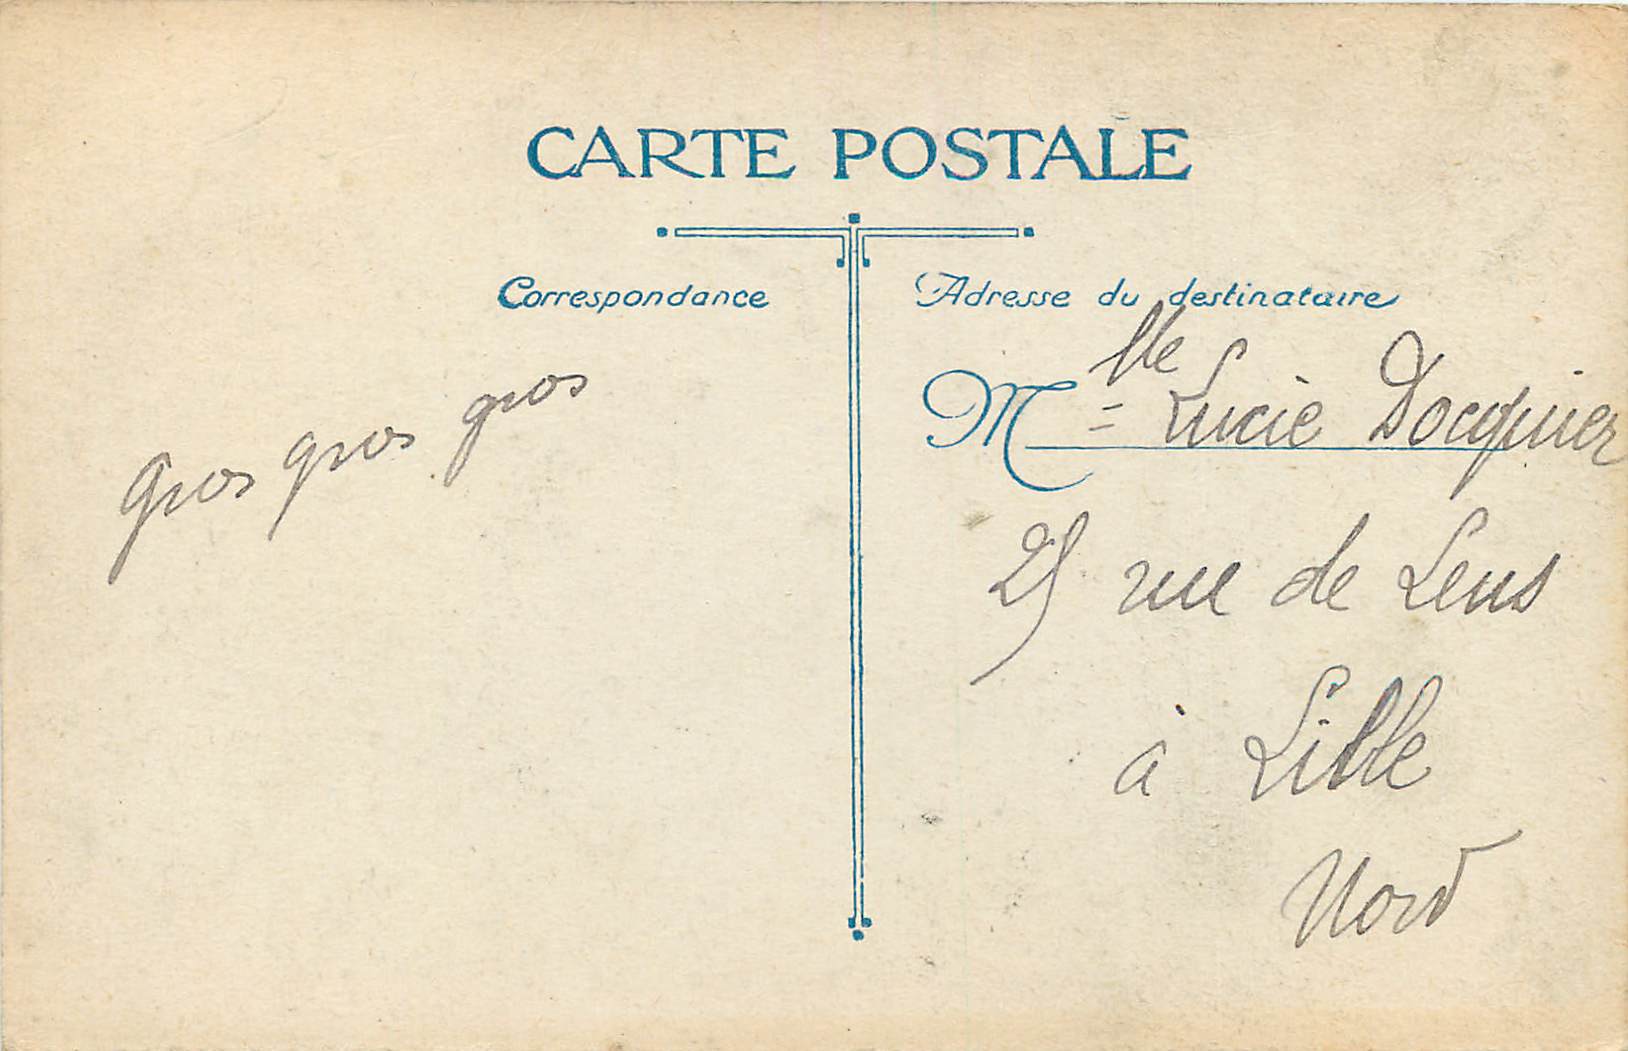 CARTE POSTALE
Correspondance
gros gros gros
Adresse du destinataire
Mlle = Lucie Docquier
25 rue de Lens
à Lille
Nord